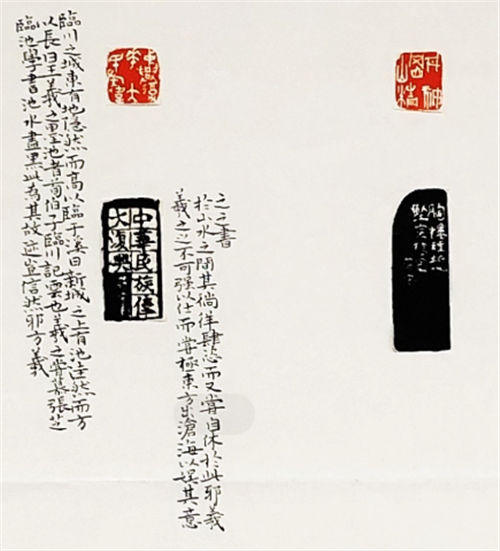 臨川之城東有地隱然而高以臨于溪曰新城之上有池洼然而方
以長曰王羲之墨池者荀伯子臨川記雲也羲之嘗慕張芝
臨池學書池水盡黑此為其故迹豈信然邪方羲
羲之之不可强以仕而嘗極東方出滄海以娛其意
於山水之間其徜徉肆恣而又嘗自休於此邪羲
之之書
中華民族偉
大復興
胸懷